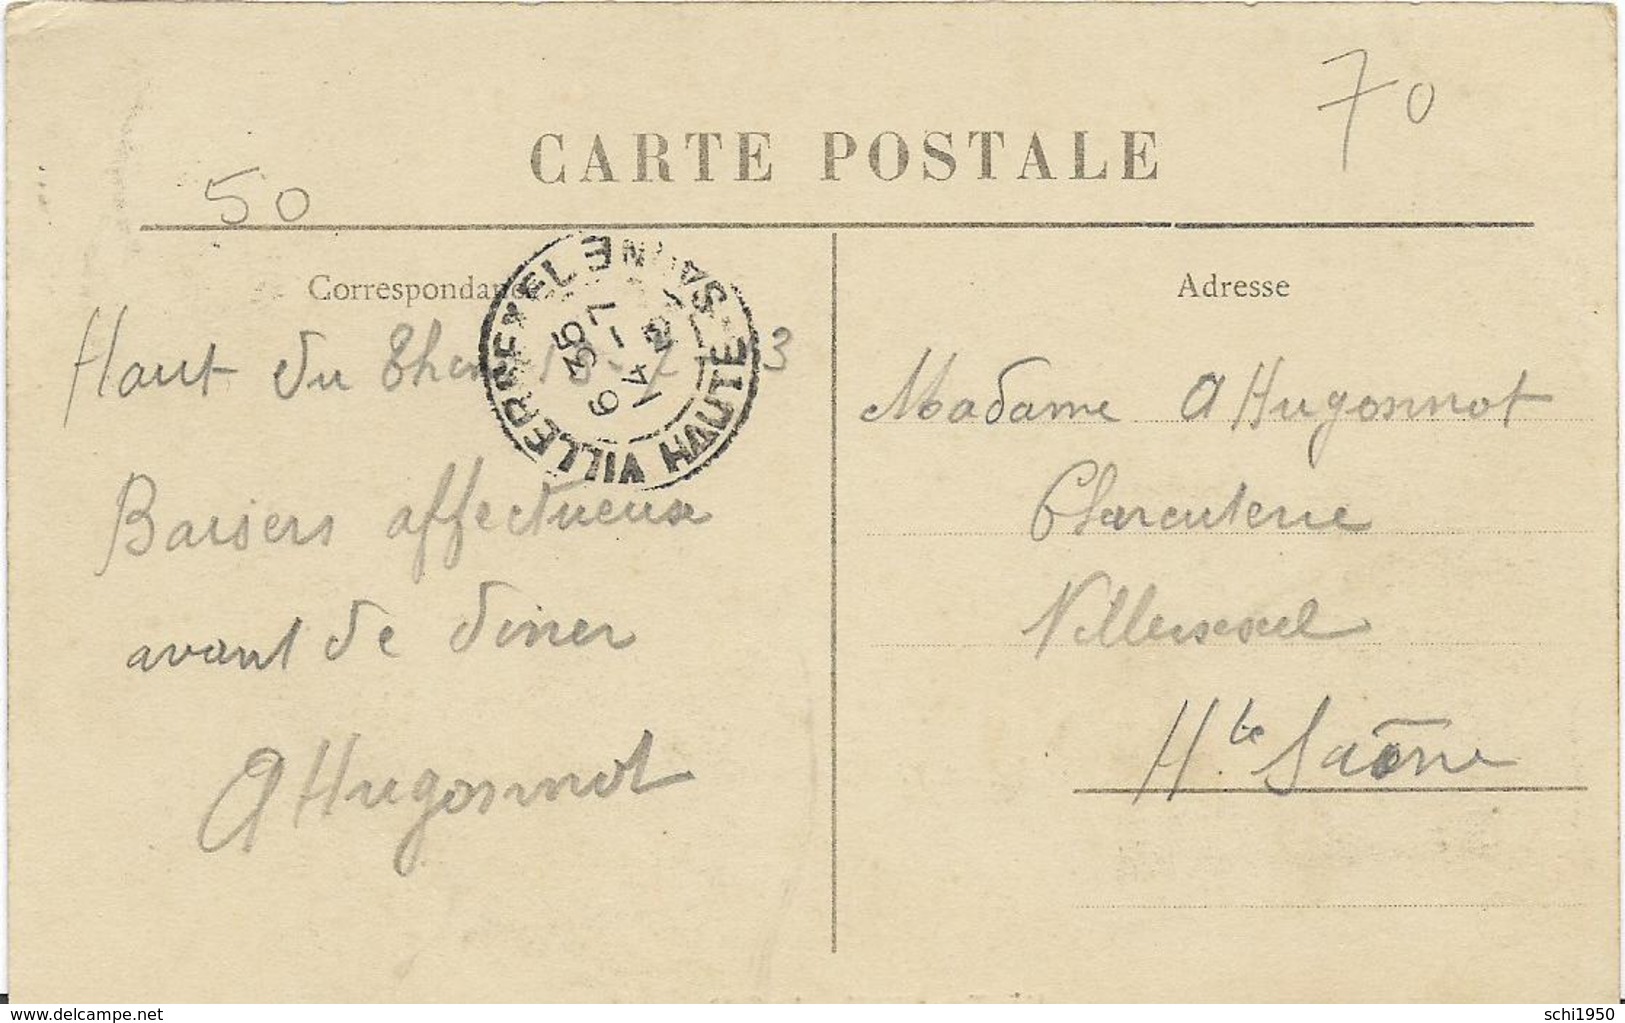 70
CARTE POSTALE
50
Correspondance
Haut du Them 13 - 7 - 3
Baisers affectueux
avant de diner
A Hugonnot
VILLERSEXEL
HAUTE SAONE
6 35
14 - 7
Adresse
Madame A Hugonnot
Charcuterie
Villersexel
Hte Saône
delcampe.net
schi1950